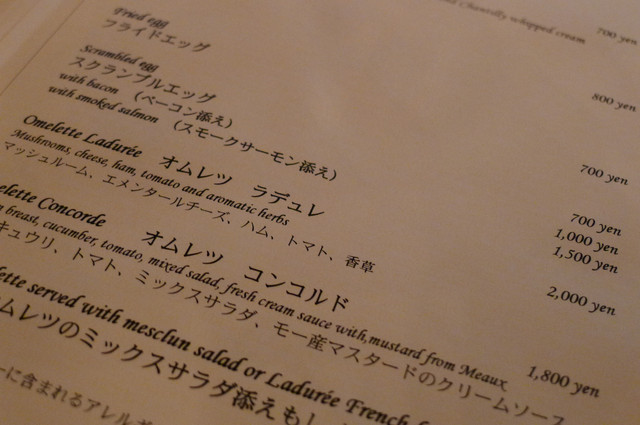 Chantilly whipped cream
700 yen
800 yen
Fried egg 700 yen
フライドエッグ
Scrambled egg 700 yen
スクランブルエッグ
with bacon (ベーコン添え) 1,000 yen
with smoked salmon (スモークサーモン添え) 1,500 yen
Omelette Ladurée オムレツ ラデュレ 2,000 yen
Mushrooms, cheese, ham, tomato and aromatic herbs
マッシュルーム、エメンタールチーズ、ハム、トマト、香草
elette Concorde オムレツ コンコルド 1,800 yen
n breast, cucumber, tomato, mixed salad, fresh cream sauce with,mustard from Meaux
キュウリ、トマト、ミックスサラダ、モー産マスタードのクリームソース
lette served with mesclun salad or Ladurée French
ムレツのミックスサラダ添えもし
ーに含まれるアレル